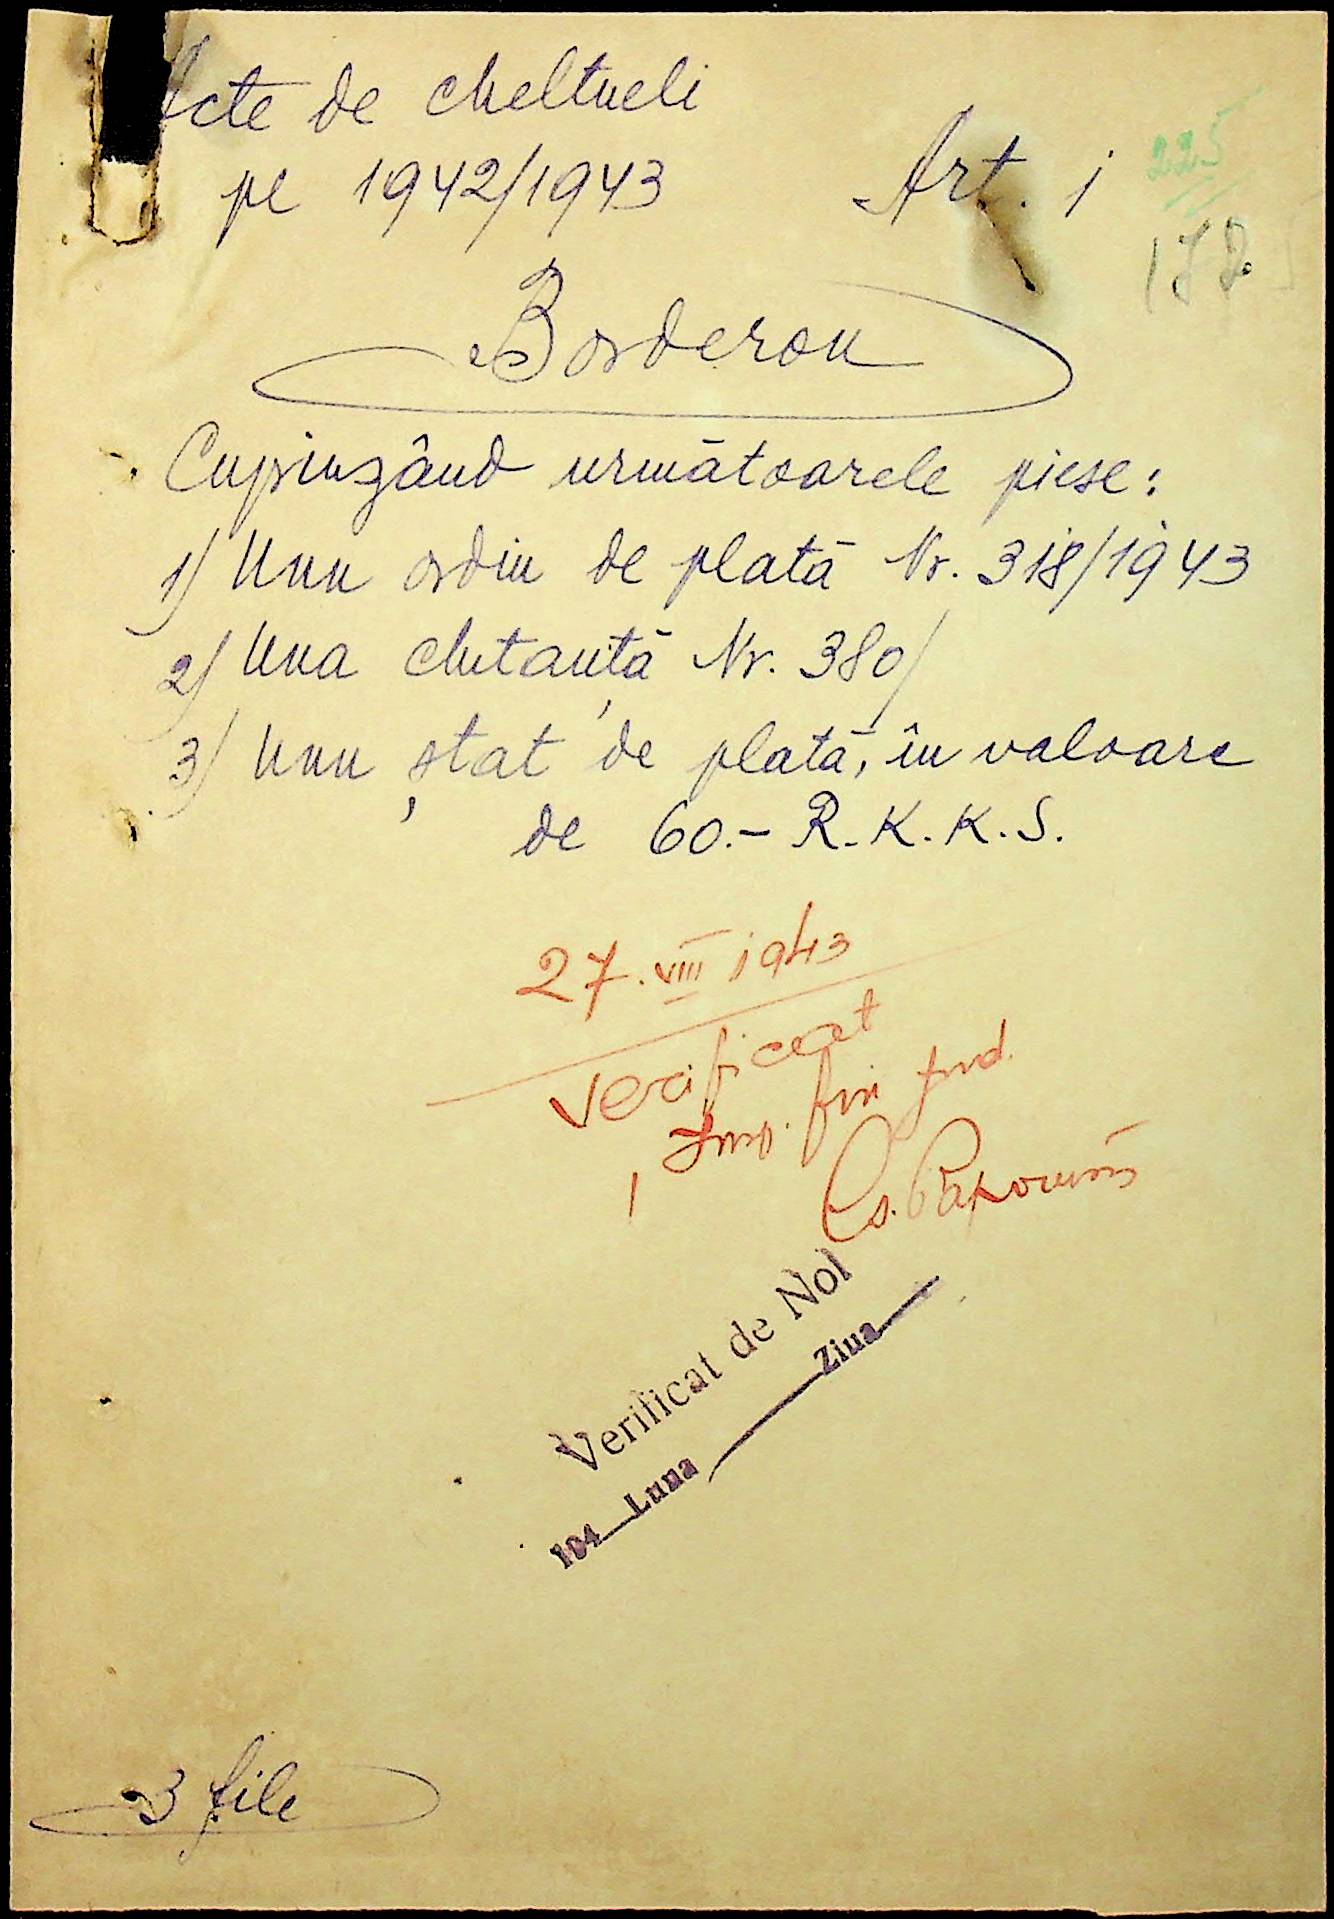 Acte de cheltueli
pe 1942/1943
Art. 1
225
Borderou
Cuprinzând următoarele piese:
1) Unu ordin de plată Nr. 318/1943
2) Una chitanță Nr. 380/
3) Unu ștat de plată, în valoare
de 60.- R.K.K.S.
27.VIII 1943
Verificat
Insp. fin jud.
Verificat de Noi
194 Luna Ziua
3 file